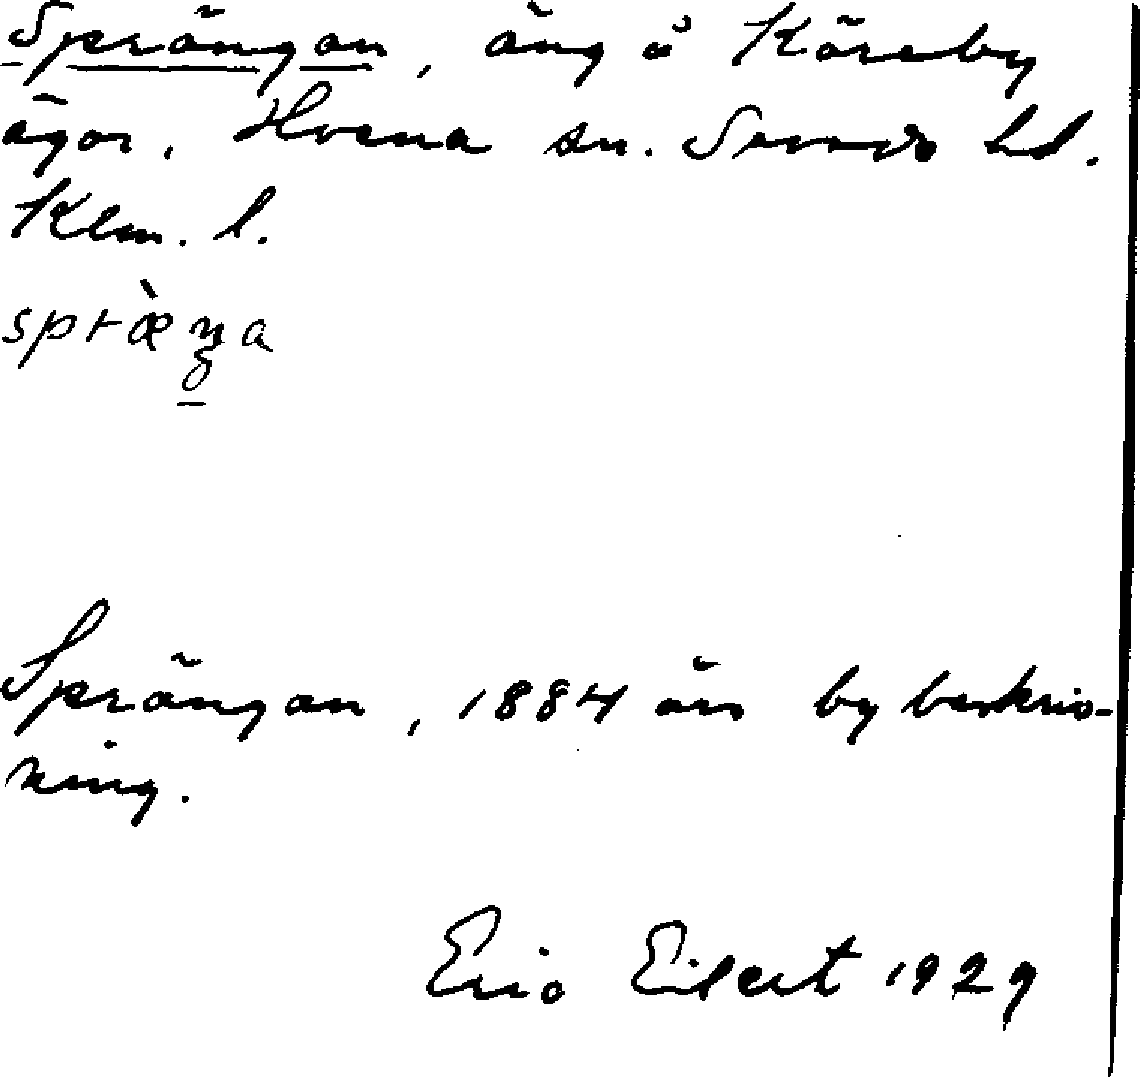 Sprängan, äng å
ägor, Hvena sn. Sevede hd.
Klm. l.
Sprängan, 1884 års by beskriv-
ning.
Eric Eilert 1929